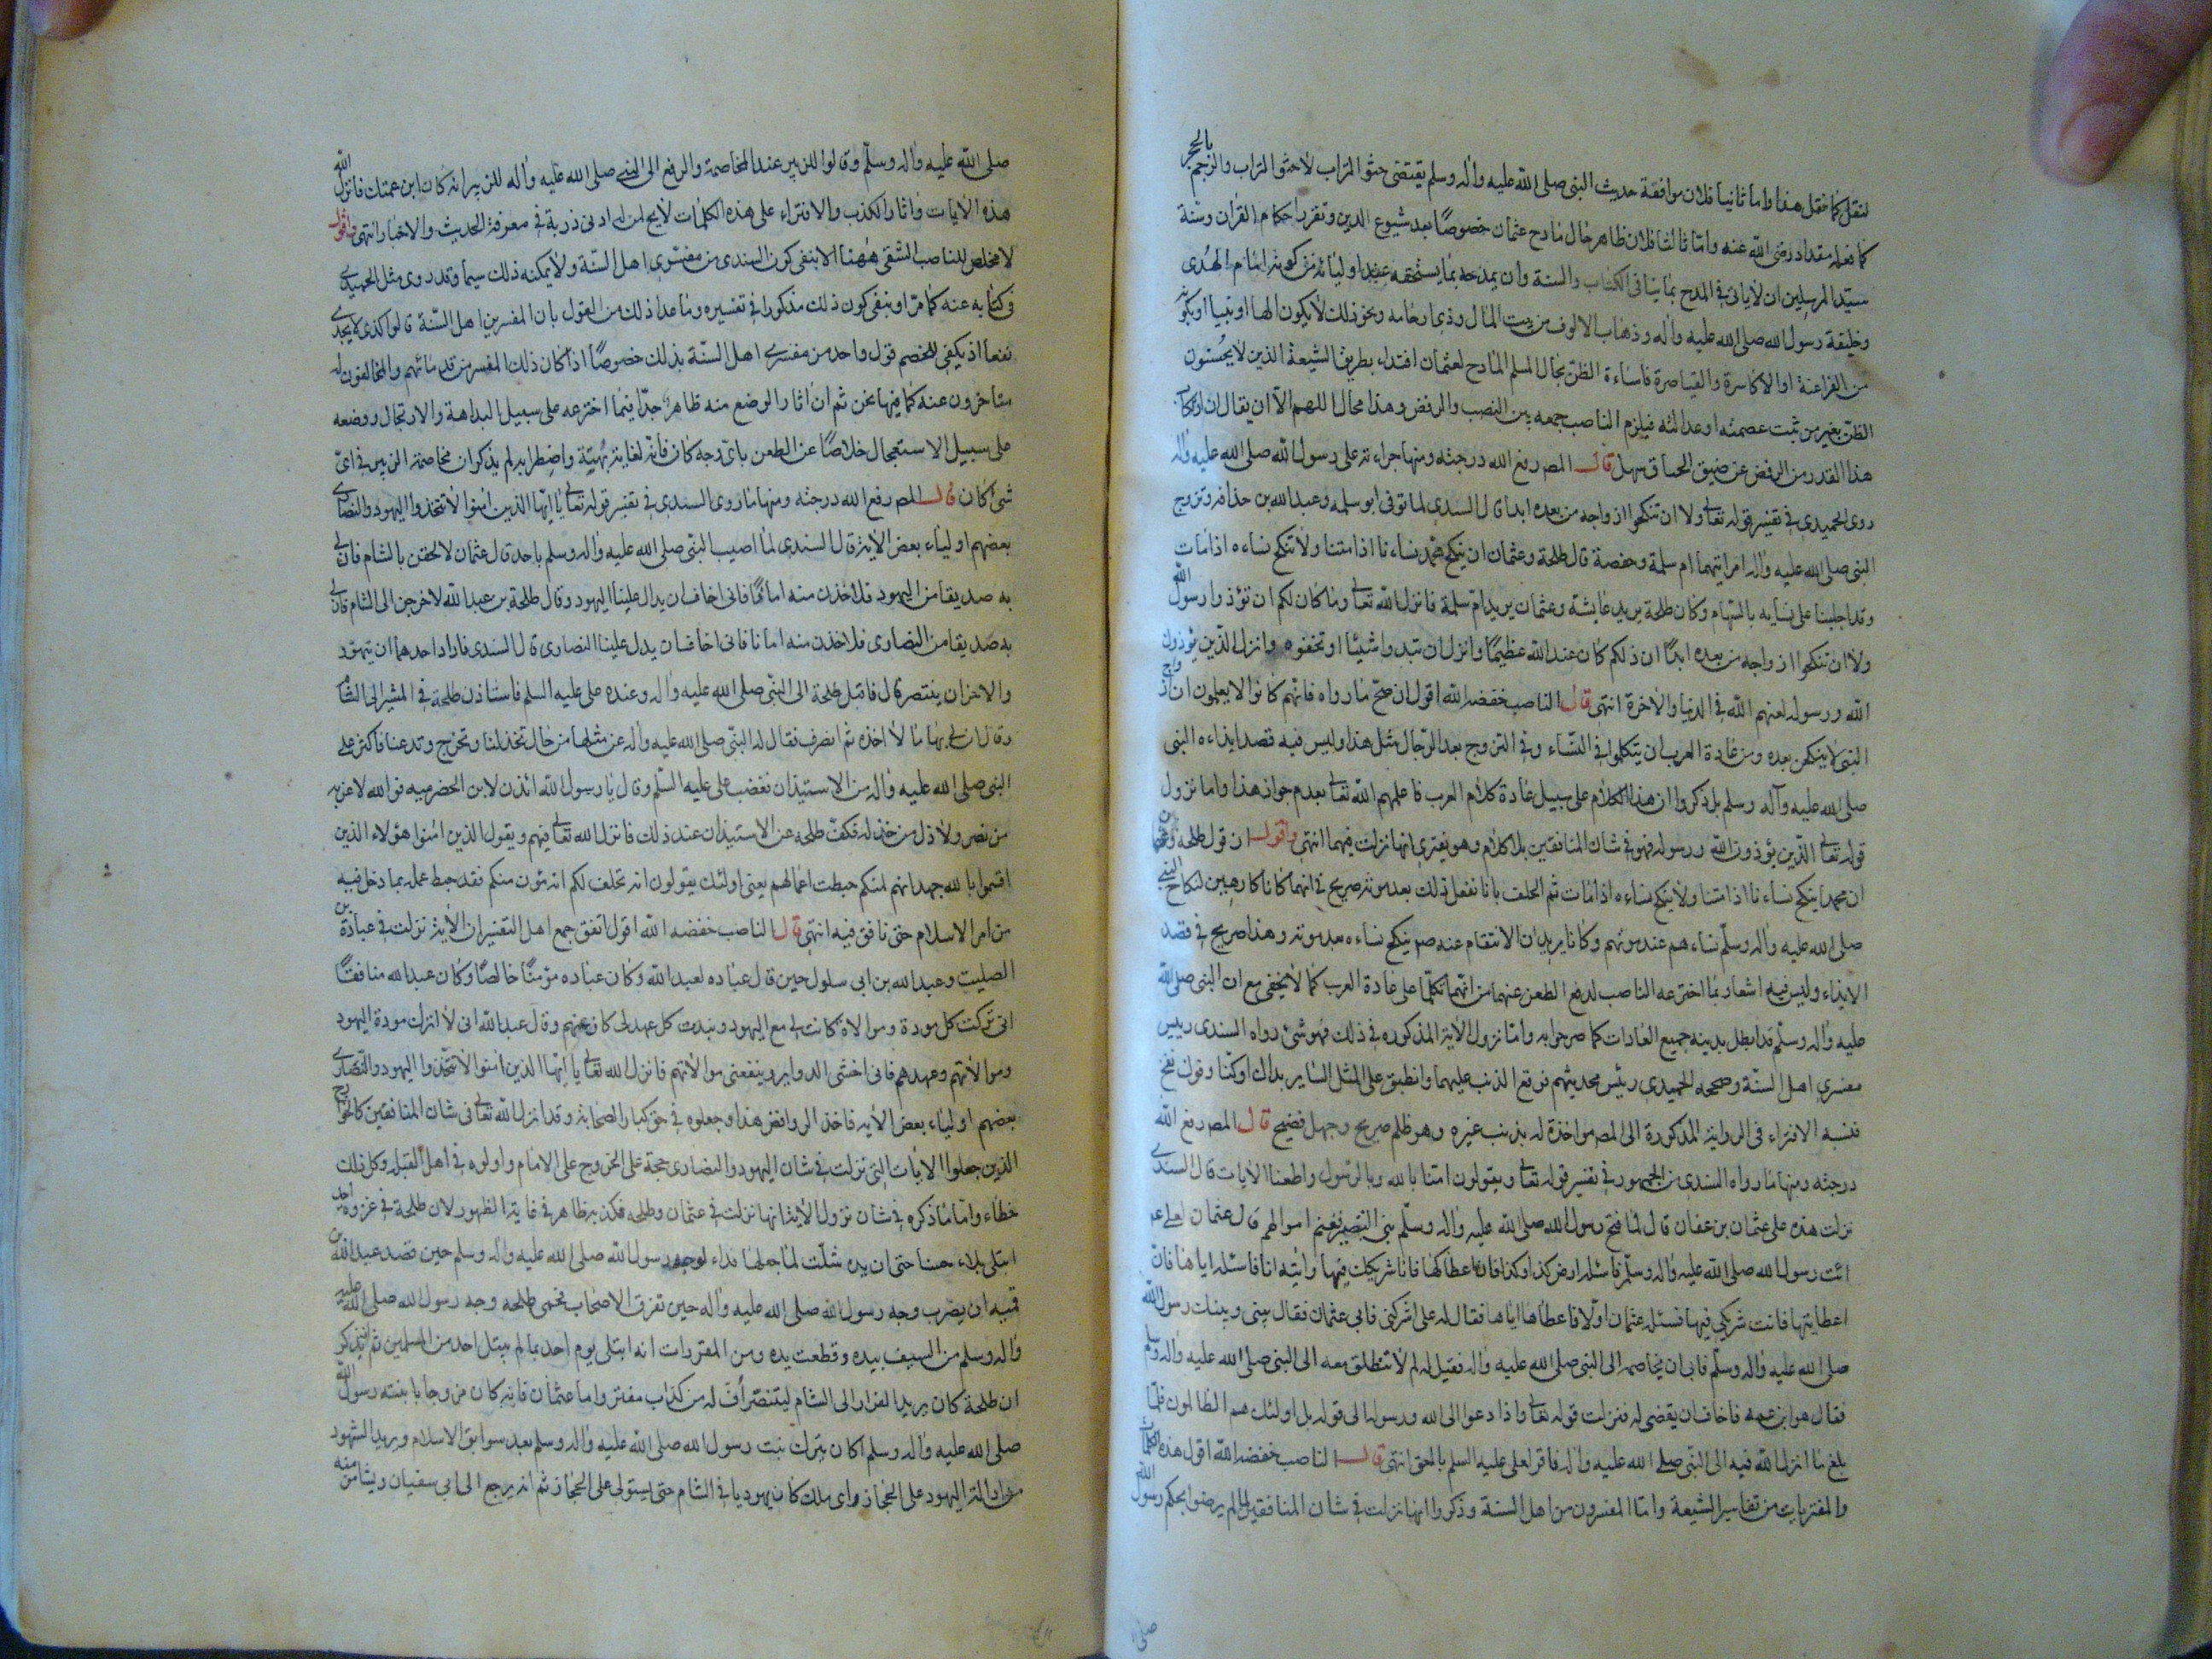 لنقل كما نقل هذا واما ثانيا فلان موافقة حديث النبي صلى الله عليه واله وسلم يقتضى حثو التراب لاحثو التراب والرجم بالحجر
كما فعله مقداد رضى الله عنه واما ثالثا فلان ظاهر حال مادح عثمان خصوصًا بعد شيوع الدين وتقرر احكام القران وسنة
سيّد المرسلين ان لا ياتى في المدح بما ينافى الكتاب والسنة وان يمدحه بما يستحقه عند اوليائه من كونه امام الهُدى
وخليفة رسول الله صلى الله عليه واله وذهاب الالوف من بيت المال وذوى ارحامه ونحو ذلك لا يكون الها او نبيا او يكون
من الفراعنة او الاكاسرة والقياصرة فاساءة الظنّ بحال المسلم المادح لعثمان اقتداء بطريق الشيعة الذين لا يحسنون
الظنّ بغير من ثبت عصمته او عدالته فيلزم الناصب جمعه بين النصب والرفض وهذا محال اللهم الا ان يقال ان ارتكاب
هذا القدر من الرفض عن ضيق الخناق سهل قال المصر رفع الله درجته ومنها جراءته على رسول الله صلى الله عليه واله
روى الحميدى في تفسير قوله تعالى ولا ان تنكحوا ازواجه من بعده ابدا قال السدى لما توفى ابو سلمه وعبد الله بن حذافه وتزوج
النبي صلى الله عليه واله امراتيهما ام سلمة وحفصة قال طلحة وعثمان اينكح محمد نساءنا اذا متنا ولا ننكح نساءه اذا مات
وقد اجلبنا على نسائه بالسهام وكان طلحة يريد عايشة وعثمان يريد ام سلمة فانزل الله تعالى وما كان لكم ان تؤذوا رسول الله
ولا ان تنكحوا ازواجه من بعده ابدًا ان ذلكم كان عند الله عظيمًا وانزل ان تبدوا شيئا او تخفوه وانزل الذين يؤذون
الله ورسوله لعنهم الله في الدنيا والاخرة انتهى قال الناصب خفضه الله اقول ان صحّ ما رواه فانهم كانوا لا يعلمون ان ازواج
النبي لا ينكحن بعده ومن عادة العرب ان يتكلموا في النساء وفي التزوج بعد الرجال مثل هذا وليس فيه قصد ايذاءه النبي
صلى الله عليه وآله وسلم بل ذكروا ان هذا الكلام على سبيل عادة كلام العرب فاعلمهم الله تعالى بعدم جواز هذا واما نزول
قوله تعالى الذين يؤذون الله ورسوله فهو في شان المنافقين بلا كلام وهو يفترى انها نزلت فيهما انتهى واقول ان قول طلحه وعثمن
ان محمدا ينكح نساءنا اذا متنا ولا ننكح نساءه اذا مات ثم الحلف بانا نفعل ذلك بعد موته صريح في انهما كانا كارهين لنكاح النبي
صلى الله عليه واله وسلّم نساءهم عند موتهم وكانا يريدان الانتقام عنه بنكح نساءه بعد موته وهذا صريح في قصد
الايذاء وليس فيه اشعار بما اخترعه الناصب لدفع الطعن عنهما من انهما تكلما على عادة العرب كما لا يخفى مع ان النبي صلى الله
عليه واله وسلّم قد ابطل بدينه جميع العادات كما صرحوا به واما نزول الاية المذكوره في ذلك فهو شئ رواه السدى رييس
مفسرى اهل السنّة وصححه الحميدى رئيس محدثيهم فوقع الذنب عليهما وانطبق على المثل الساير يداك اوكتا وفوك نفخ
فنسبه الافتراء في الرواية المذكورة الى المص مواخذة له بذنب غيره وهو ظلم صريح وجهل فضيح قال المصر رفع الله
درجته ومنها ما رواه السدى من الجمهور في تفسير قوله تعالى ويقولون امنا بالله وبالرسول واطعنا الايات قال السدى
نزلت هذه على عثمان بن عفان قال لما فتح رسول الله صلى الله عليه واله وسلّم بنى النضير فغنم اموالهم قال عثمان لعلى ع
ائت رسول الله صلى الله عليه واله وسلّم فاسئله ارض كذا وكذا فان اعطاكها فانا شريكك فيها وآتيه انا فاسئله اياها فان
اعطانيها فانت شريكى فيها فسئله عثمان اولا فاعطاها اياها فقال له على اشركنى فابى عثمان فقال بينى وبينك رسول الله
صلى الله عليه واله وسلّم فابى ان يخاصمه الى النبي صلى الله عليه واله فقيل له لم لا تنطلق معه الى النبي صلى الله عليه واله وسلم
فقال هو ابن عمه فاخاف ان يقضى له فنزلت قوله تعالى واذا دعوا الى الله ورسوله الى قوله بل اولئك هم الظالمون فلما
بلغ ما انزل الله فيه الى النبي صلى الله عليه واله فاقر لعلى عليه السلم بالحق انتهى قال الناصب خفضه الله اقول هذه الكلمات
والمفتريات من تفاسير الشيعة واما المفسرون من اهل السنة وذكروا انها نزلت في شان المنافقين لما لم يرضوا بحكم رسول الله
صلى
صلى الله عليه واله وسلّم وقالوا للزبير عند المخاصمة والرفع الى النبي صلى الله عليه واله للزبير انه كان ابن عمتك فانزل الله
هذه الايات واثار الكذب والافتراء على هذه الكلمات لايح لمن له ادنى ذربة في معرفة الحديث والاخبار انتهى واقول
لا مخلص للناصب الشقى ههنا الا بنفى كون السدى من مفسرى اهل السنّة ولا يمكنه ذلك سيما وقد روى مثل الحميدى
في كتابه عنه كما مرّ او بنفى كون ذلك مذكورا في تفسيره وما عدا ذلك من القول بان المفسرين اهل السنّة قالوا كذى لا يجدى
نفعا اذ يكفى للخصم قول واحد من مفسرى اهل السنّة بذلك خصوصًا اذا كان ذلك المفسر من قدمائهم والمخالفون له
متاخرون عنه كما فيها نحن ثم ان اثار الوضع منه ظاهرة جدّا فيما اخترعه على سبيل البداهة والارتجال ووضعه
على سبيل الاستعجال خلاصًا عن الطعن باىّ وجه كان فانّه لغاية تهيّئه واضطرابه لم يذكر ان مخاصمة الزبير في اىّ
شئ كان قال المصر رفع الله درجته ومنها ما روى السدى في تفسير قوله تعالى يا ايّها الذين امنوا لا تتخذوا اليهود والنصارى
بعضهم اولياء بعض الاية قال السدى لما اصيب النبي صلى الله عليه واله وسلم باحد قال عثمان لالحقن بالشام فان لى
به صديقا من اليهود فلاخذن منه امانًا فانى اخاف ان يدال علينا اليهود وقال طلحة بن عبد الله لاخرجن الى الشام فان لى
به صديقا من النصارى فلاخذن منه امانا فانى اخاف ان يدل علينا النصارى قال السدى فاراد احدهما ان يتهوّد
والاخر ان يتنصر قال فاقبل طلحة الى النبي صلى الله عليه واله وعنده على عليه السلم فاستاذن طلحة في المسير الى الشام
وقال ان لى بها مالا اخذه ثم انصرف فقال له النبي صلى الله عليه واله عن مثلها من حال تخذلنا وتخرج وتدعنا فاكثر على
النبي صلى الله عليه واله من الاستيذان فغضب على عليه السّلم وقال يا رسول الله ائذن لابن الحضرميه فوالله لا عز به
من نصر ولا ذل من خذله فكفّ طلحه عن الاستيذان عند ذلك فانزل الله تعالى فيهم ويقول الذين امنوا هؤلاء الذين
اقسموا بالله جهد ايمانهم لمعكم حبطت اعمالهم يعنى اولئك يقولون انه يحلف لكم انه مؤمن منكم فقد حبط عمله بما دخل فيه
من امر الاسلام حتى نافق فيه انتهى قال الناصب خفضه الله اقول اتفق جمع اهل التفسير ان الاية نزلت في عبادة بن
الصليت وعبد الله بن ابى سلول حين قال عباده لعبد الله وكان عباده مؤمنًا خالصًا وكان عبد الله منافقًا
انى تركت كل مودة وموالاة كانت لى مع اليهود ونبذت كل عهد لى كان معهم وقال عبد الله انى لا اترك مودة اليهود
وموالاتهم وعهدهم فانى اخشى الدواير وينفعنى موالاتهم فانزل الله تعالى يا ايّها الذين امنوا لا تتّخذوا اليهود والنصارى
بعضهم اولياء بعض الاية فاخذ الروافض هذا وجعلوه في حق كبار الصحابة وقد انزل الله تعالى في شان المنافقين كالخوارج
الذين جعلوا الايات التى نزلت في شان اليهود والنصارى حجة على الخروج على الامام واولوه في اهل القبلة وكل ذلك
خطاء وامّا ما ذكره في شان نزول الاية انها نزلت في عثمان وطلحه فكذبه ظاهر في غاية الظهور لان طلحة في غزوة احد
ابتلى بلاء حسنا حتى ان يده شلّت لما جعلها فداء لوجه رسول الله صلى الله عليه واله وسلم حين قصد عبد الله بن
قميه ان يضرب وجه رسول الله صلى الله عليه واله حين تفرق الاصحاب فحمى طلحه وجه رسول الله صلى الله عليه
واله وسلم من السيف بيده وقطعت يده ومن المقررات انه ابتلى يوم احد بما لم يبتل احد من المسلمين ثم يذكر
ان طلحة كان يريد الفرار الى الشام ليتنصّر اُفّ له من كذاب مفتر واما عثمان فانه كان مزوجا بابنته رسول الله
صلى الله عليه واله وسلم اكان يترك بنت رسول الله صلى الله عليه واله وسلم بعد سوابق الاسلام ويريد الشهود
اليهود على الحجاز واى ملك كان يهوديا في الشام حتى يستولى على الحجاز ثم انه يرجع الى ابى سفيان ويشامن منه